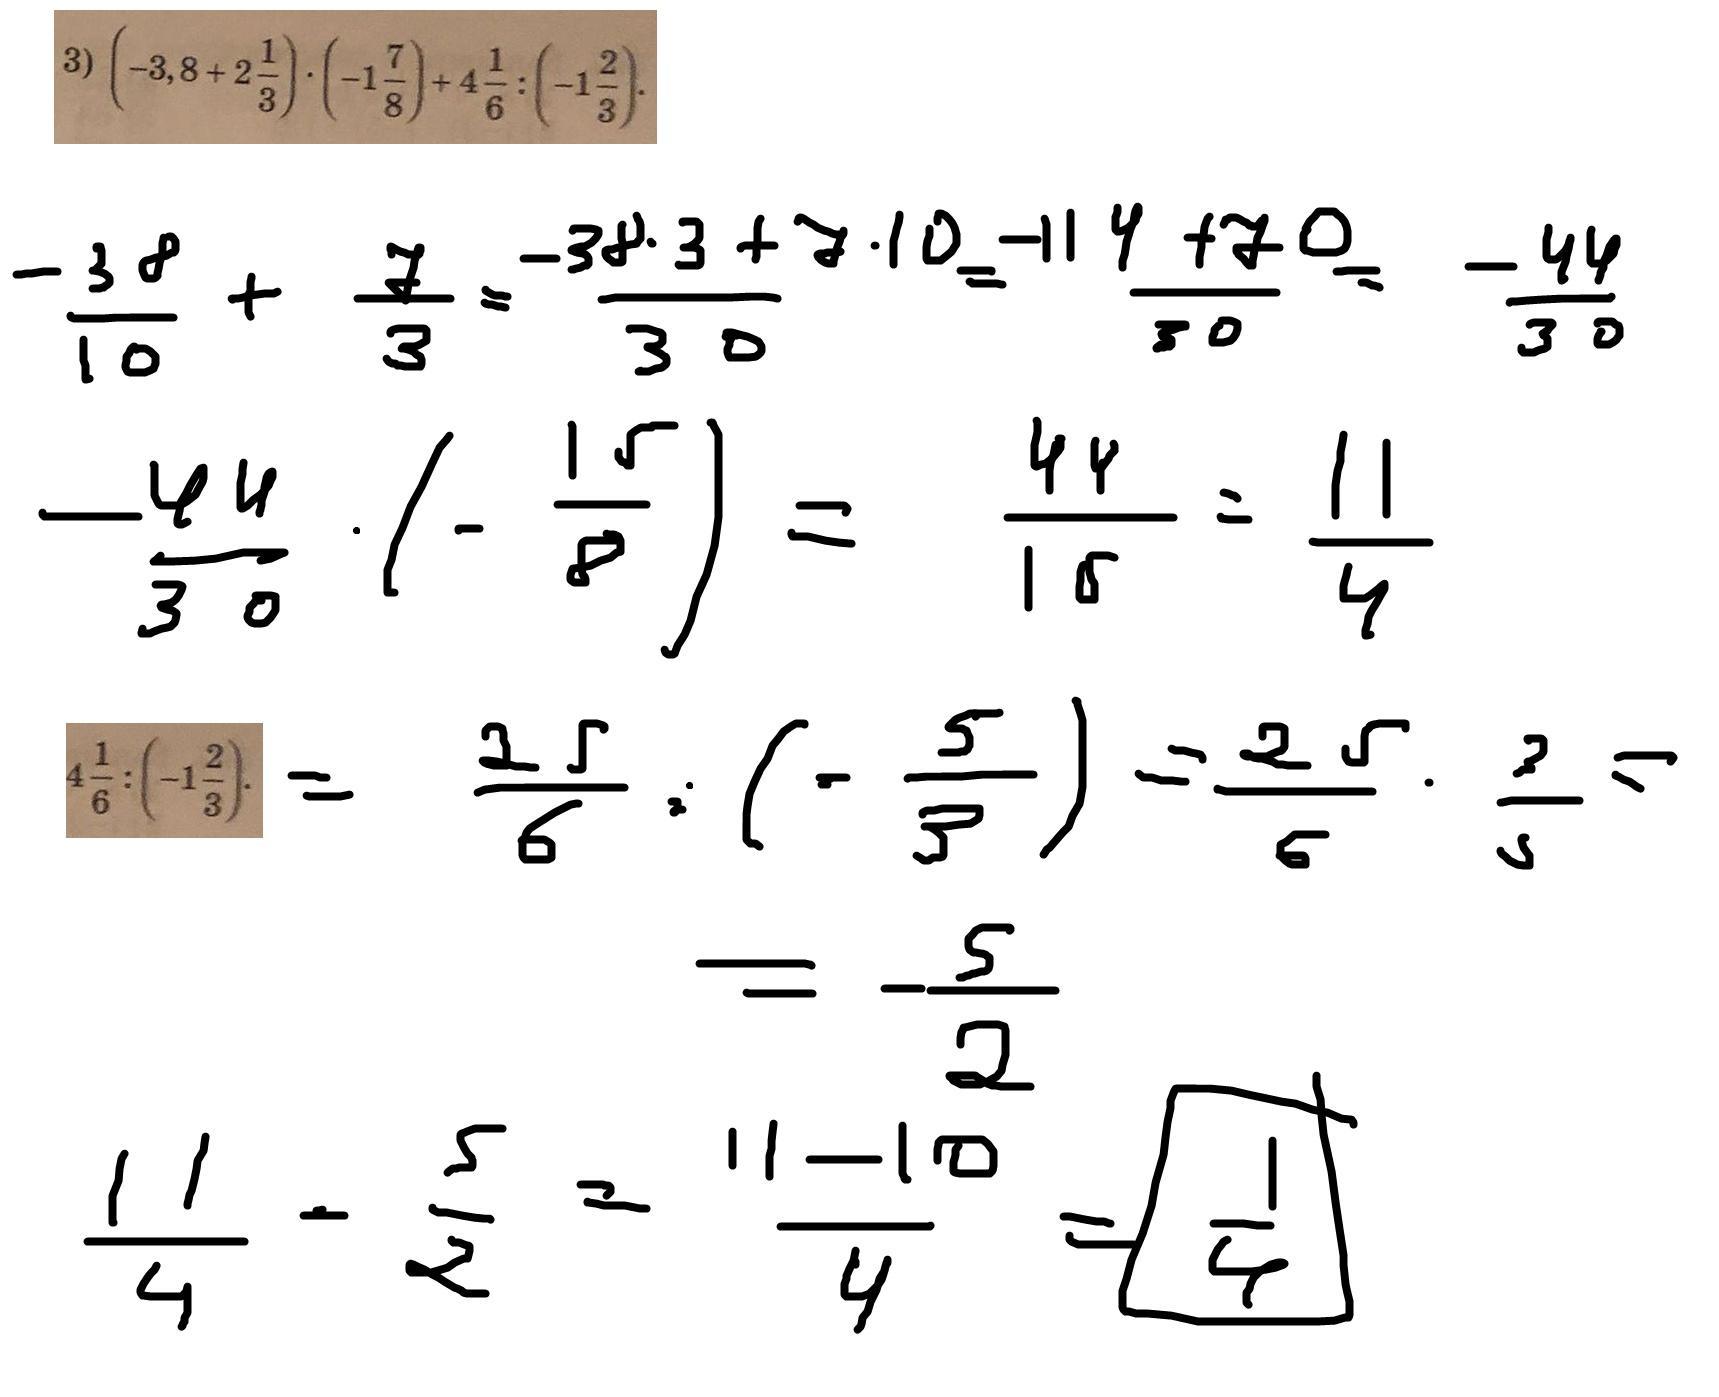 3) (−3,8 + 2 1/3) · (−1 7/8) + 4 1/6 : (−1 2/3).
−38/10 + 7/3 = (−38·3 + 7·10)/30 = (−114 + 70)/30 = −44/30
−44/30 · (−15/8) = 44/16 = 11/4
4 1/6 : (−1 2/3). = 25/6 : (−5/3) = 25/6 · 3/5 =
= −5/2
11/4 − 5/2 = (11−10)/4 = 1/4